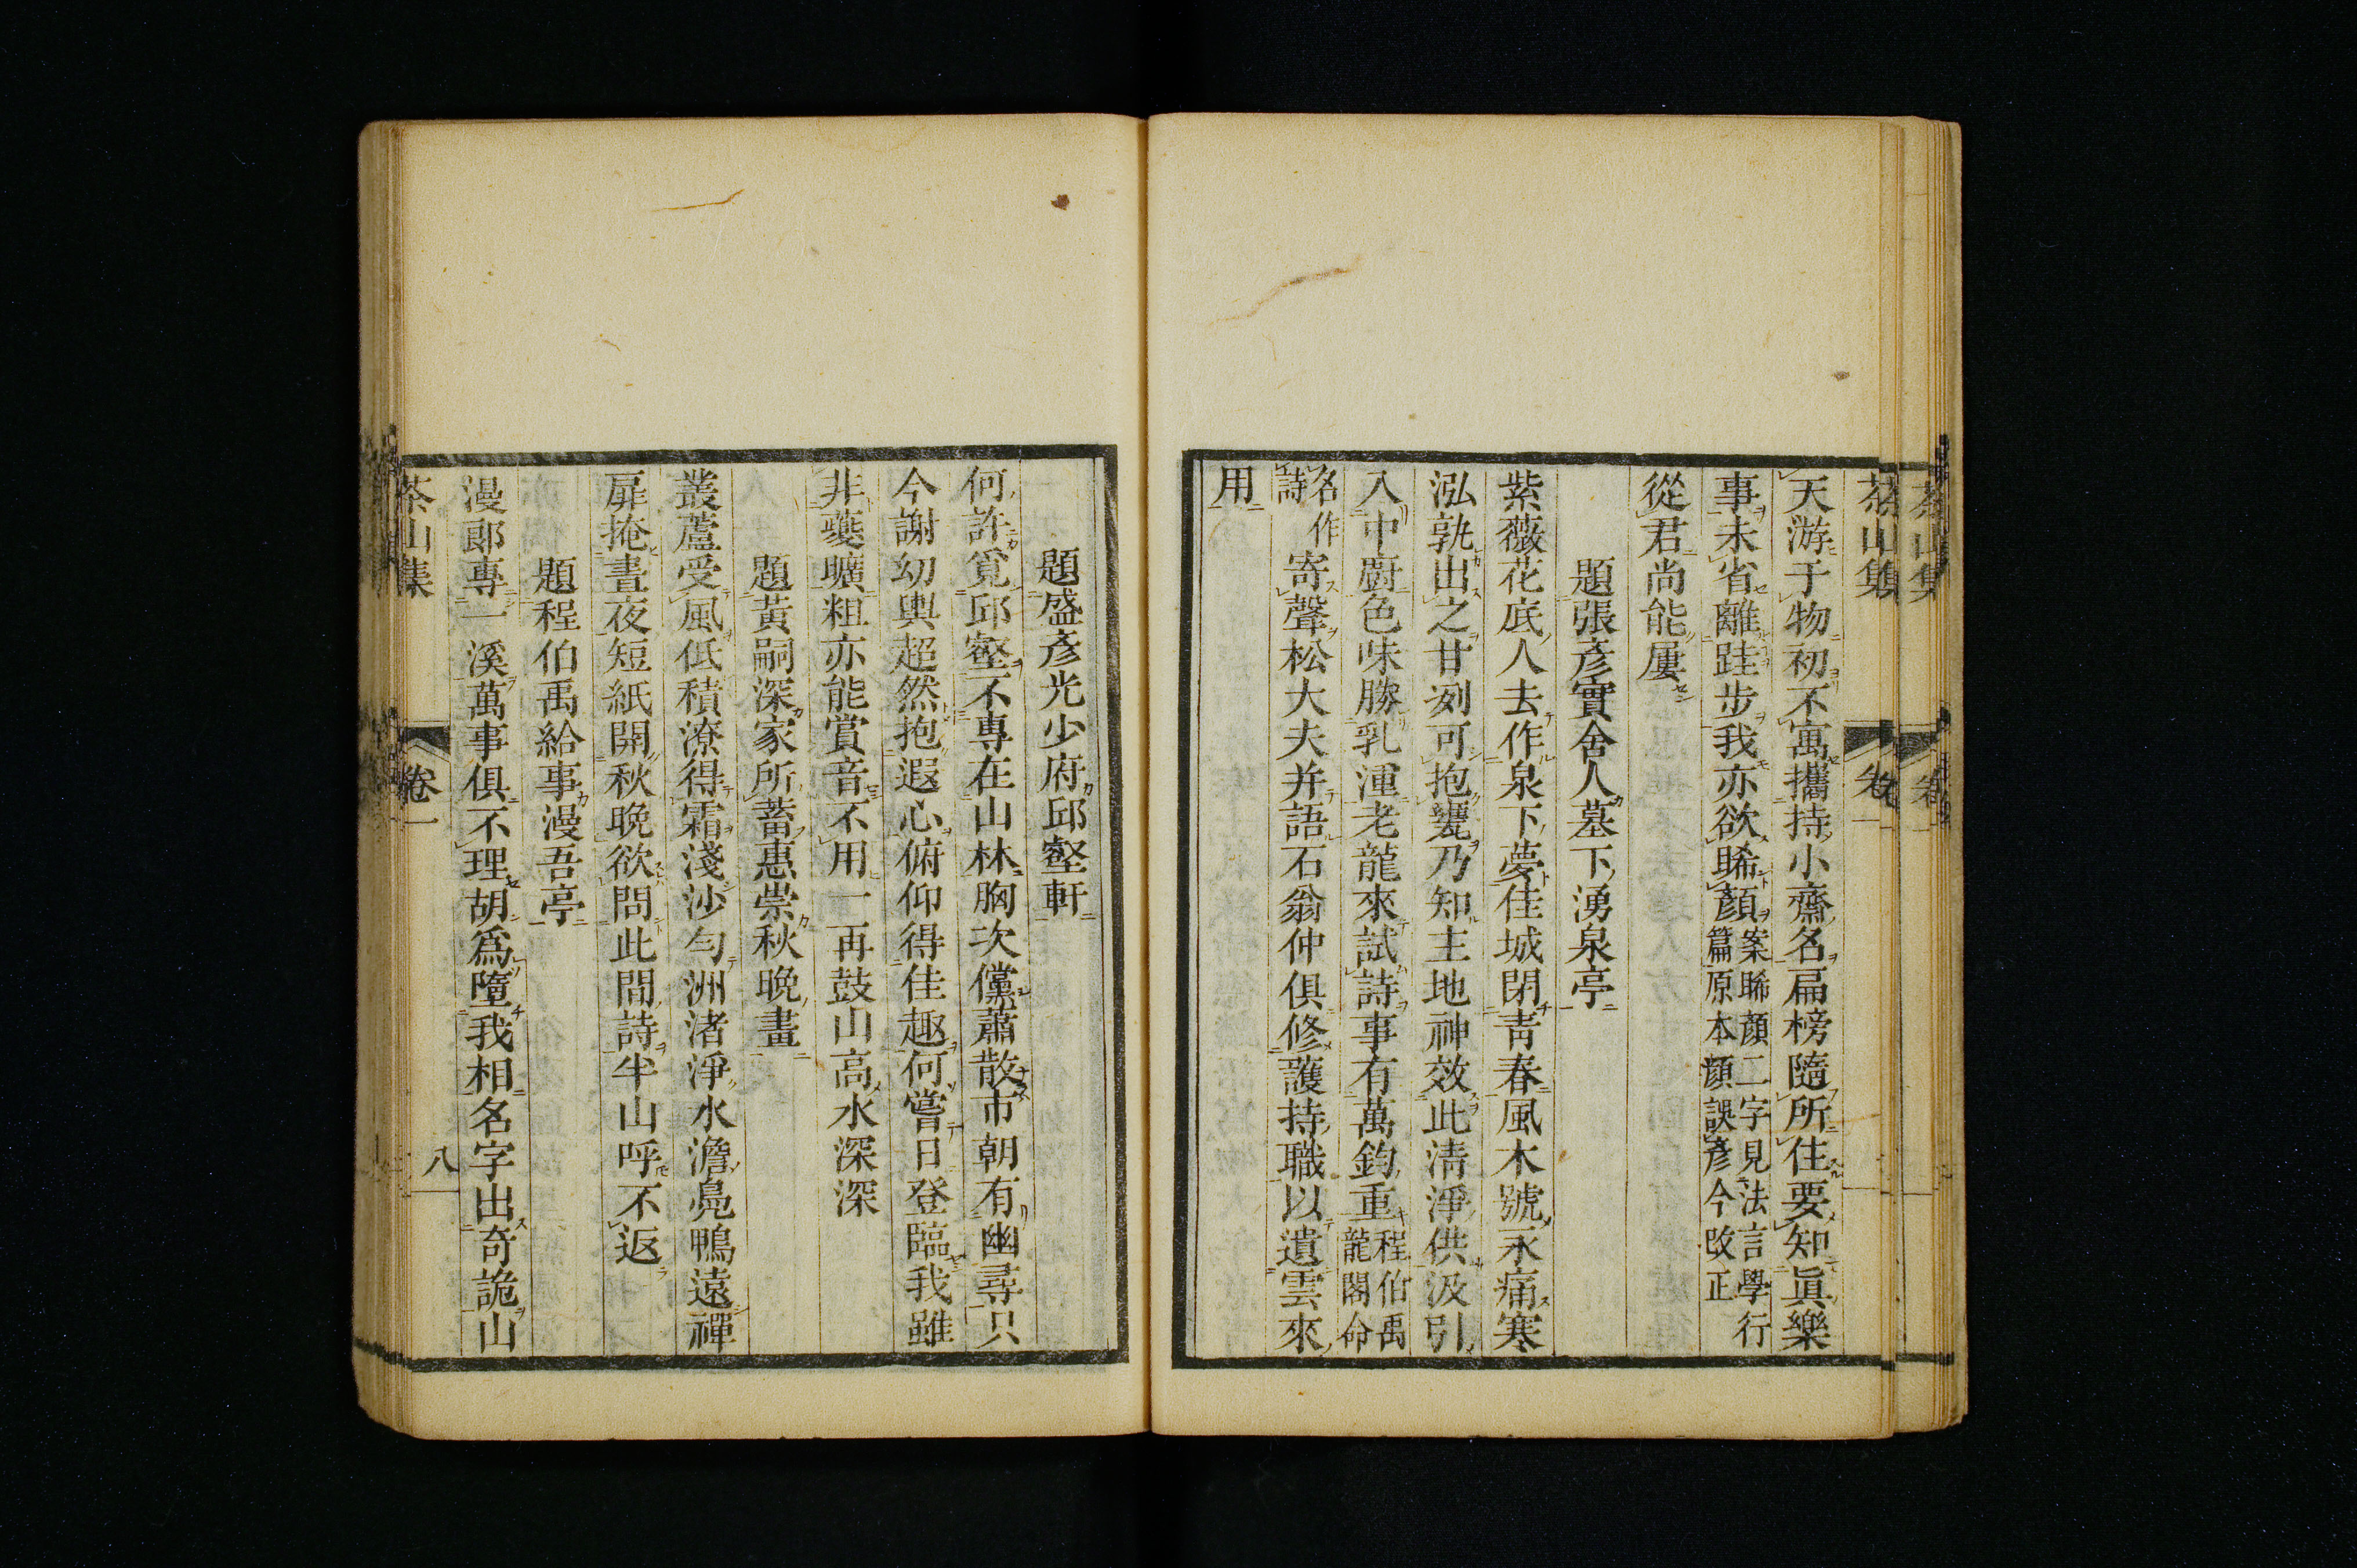 茶山集
天游于物初不寓攜持小齋名扁榜隨所住要知眞樂
事未省離跬步我亦欲睎顏案睎顏二字見法言學行篇原本顏誤彥今改正
從君尚能屢
題張彥實舍人墓下湧泉亭
紫薇花底人去作泉下夢佳城閉靑春風木號永痛寒
泓孰出之甘冽可抱甕乃知主地神效此淸淨供汲引
入中廚色味勝乳湩老龍來試詩事有萬鈞重程伯禹龍閣命
名作詩寄聲松大夫并語石翁仲俱修護持職以遺雲來
用
題盛彥光少府邱壑軒
何許覓邱壑不專在山林胸次儻蕭散市朝有幽尋只
今謝幼輿超然抱遐心俯仰得佳趣何嘗日登臨我雖
非夔曠粗亦能賞音不用一再鼓山高水深深
題黃嗣深家所蓄惠崇秋晚畫
叢蘆受風低積潦得霜淺沙勻洲渚淨水澹鳧鴨遠禪
扉掩晝夜短紙開秋晚欲問此間詩半山呼不返
題程伯禹給事漫吾亭
漫郞專一溪萬事俱不理胡爲墮我相名字出奇詭山
茶山集 卷一 八